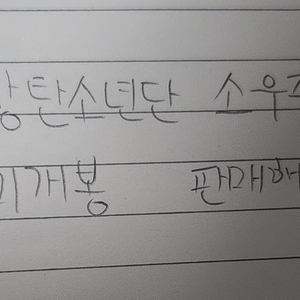 방탄소년단 소우
미개봉 판매해